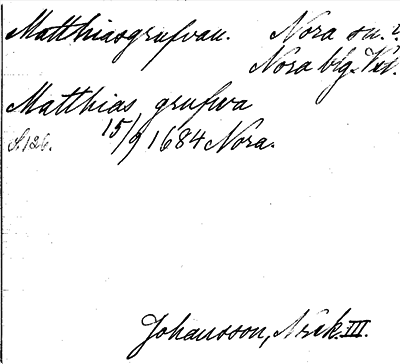 Matthiasgrufvan. Nora sn. o.
Nora blg. Vstl.
Matthias grufwa
S. 126. 15/9 1684 Nora.
Johansson, Arik. III.